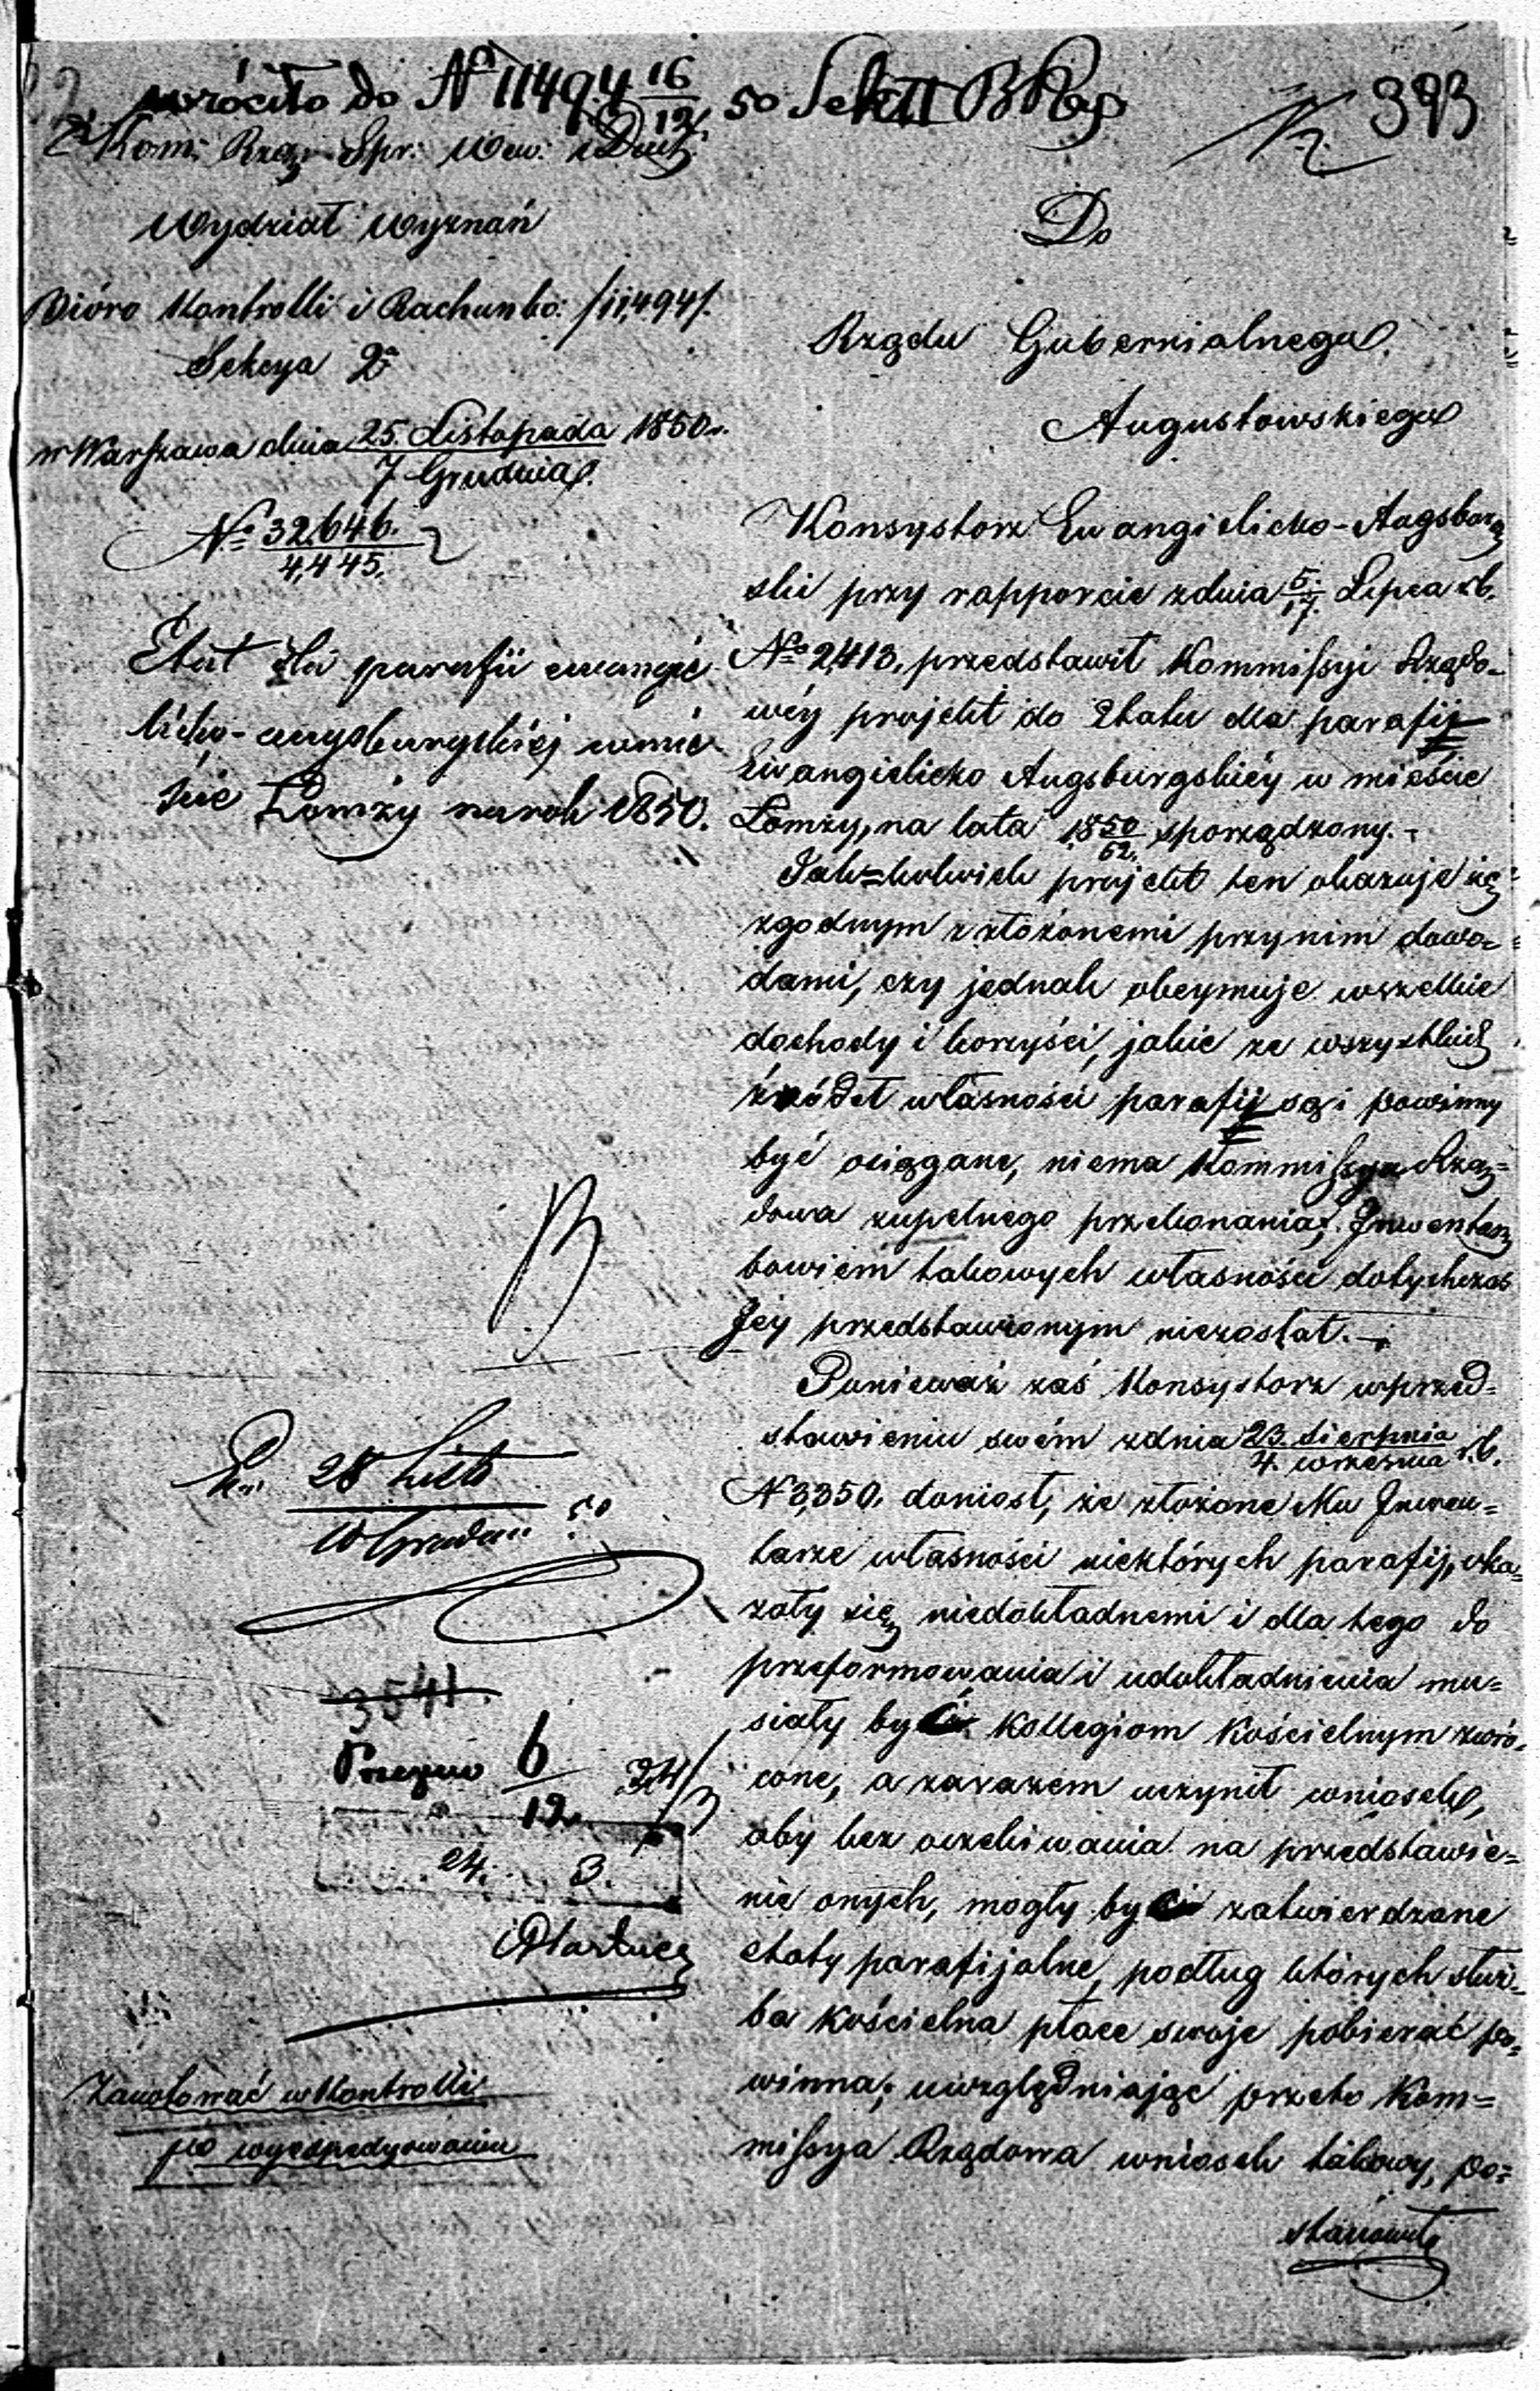 wróciło do N 11494 16/12 50 Sek II
393
Kom: Rząz: Spr: Wew: i Duch:
Wydział Wyznań
Bióro Kontrolli i Rachunko: /11,494/.
Sekcya 2a
w Warszawa dnia 25. Listopada 1850.
7 Grudnia
No 32646.
4,445.
Etat dla parafii ewangie
licko-augsburgskiéj w mie
ście Łomży na rok 1850.
Do
Rządu Gubernialnego
Augustowskiego
Konsystorz Ewangielicko-Augsburg
ski przy rapporcie z dnia 5./17. Lipca r.b.
No 2,413, przedstawił Kommissyi Rządo-
wéy projekt do Etatu dla parafij
Ewangielicko Augsburgskiéy w mieście
Łomży, na lata 1850/52. sporządzony. -
Jak=kolwiek projekt ten okazuje się
zgodnym z złożonemi przy nim dowo=
dami, czy jednak obeymuje wszelkie
dochody i korzyści, jakie ze wszystkich
źródeł własności parafij są i powinny
być ociągane, niema Kommissya Rzą=
dowa zupełnego przekonania; Inwentarz
bowiem takowych własności dotychczas
Jéy przedstawionym niezostał. -
Ponieważ zaś Konsystorz w przed=
stawieniu swém z dnia 23. Sierpnia / 4. września r.b.
N 3,350. doniosł, że złożone Mu Inwen=
tarze własności niektórych parafij, oka=
zały się niedokładnemi i dla tego do
przeformowania i udokładnienia mu=
siały być Kollegiom Kościelnym zwró-
cone, a zarazem uczynił wniosek,
aby bez oczekiwania na przedstawie=
nie onych, mogły być zatwierdzone
etaty parafijalne, podług których służ-
ba kościelna płace swoje pobierać po-
winna; uwzględniając przeto Kom=
missya Rządowa wniosek takowy, po=
stanowiła
28 List
10 Grudnia 50
3541.
6
12
24/3
24. 3.
Zanotować w Kontrolli
po wyexpedyowaniu